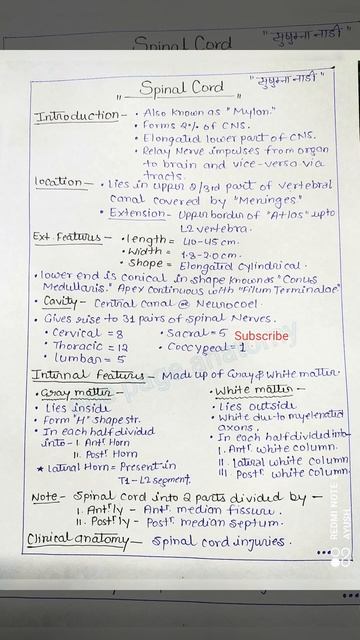 Spinal Cord "सुषुम्ना नाडी"
" Spinal Cord " "सुषुम्ना नाडी"
Introduction - • Also known as "Mylon."
• Forms 2% of CNS.
• Elongated lower part of CNS.
• Relay Nerve impulses from organ
to brain and vice-versa via
tracts.
location - • Lies in upper 2/3rd part of vertebral
canal covered by "Meninges"
• Extension - Upper border of "Atlas" upto
L2 vertebra.
Ext. Features - • length = 40-45 cm.
• Width = 1.8-2.0 cm.
• Shape = Elongated Cylindrical.
• lower end is conical in shape known as "Conus
Medullaris." Apex continuous with "Filum Terminalae"
• Cavity - Central canal @ Neurocoel.
• Gives rise to 31 pairs of spinal Nerves.
• Cervical = 8 • Sacral = 5 Subscribe
• Thoracic = 12 • Coccygeal = 1
• lumbar = 5
Internal features - Made up of Gray & White matter.
• Gray matter - • White matter -
• Lies inside • Lies outside
• Form "H" shape str. • White due to myelenated
axons.
• In each half divided • In each half divided into-
into - I. Ant. Horn I. Antr. white column.
II. Postr. Horn II. lateral white column
★ lateral Horn = Present in III. Postr. white column.
T1-L2 segment.
Note - Spinal cord into 2 parts divided by -
I. Antrly - Antr. median fissure.
II. Postrly - Postr. median septum.
Clinical anatomy - Spinal cord injuries.
REDMI NOTE
AYUSH